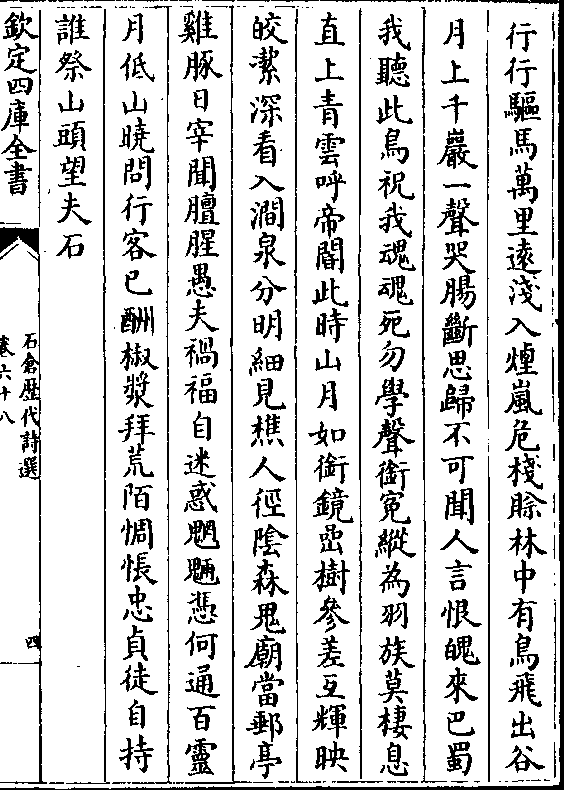 行行驅馬萬里遠淺入煙嵐危棧賖林中有鳥飛出谷
月上千巖一聲哭腸斷思歸不可聞人言恨魄來巴蜀
我聽此鳥祝我魂魂死勿學聲銜寃縱為羽族莫棲息
直上青雲呼帝閽此時山月如銜鏡嵒樹參差互輝映
皎潔深看入澗泉分明細見樵人徑隂森鬼廟當郵亭
雞豚日宰聞膻腥愚夫禍福自迷惑魍魎憑何通百靈
月低山曉問行客已酬椒漿拜荒陌惆悵忠貞徒自持
誰祭山頭望夫石
欽定四庫全書
石倉歴代詩選
卷六十八
四